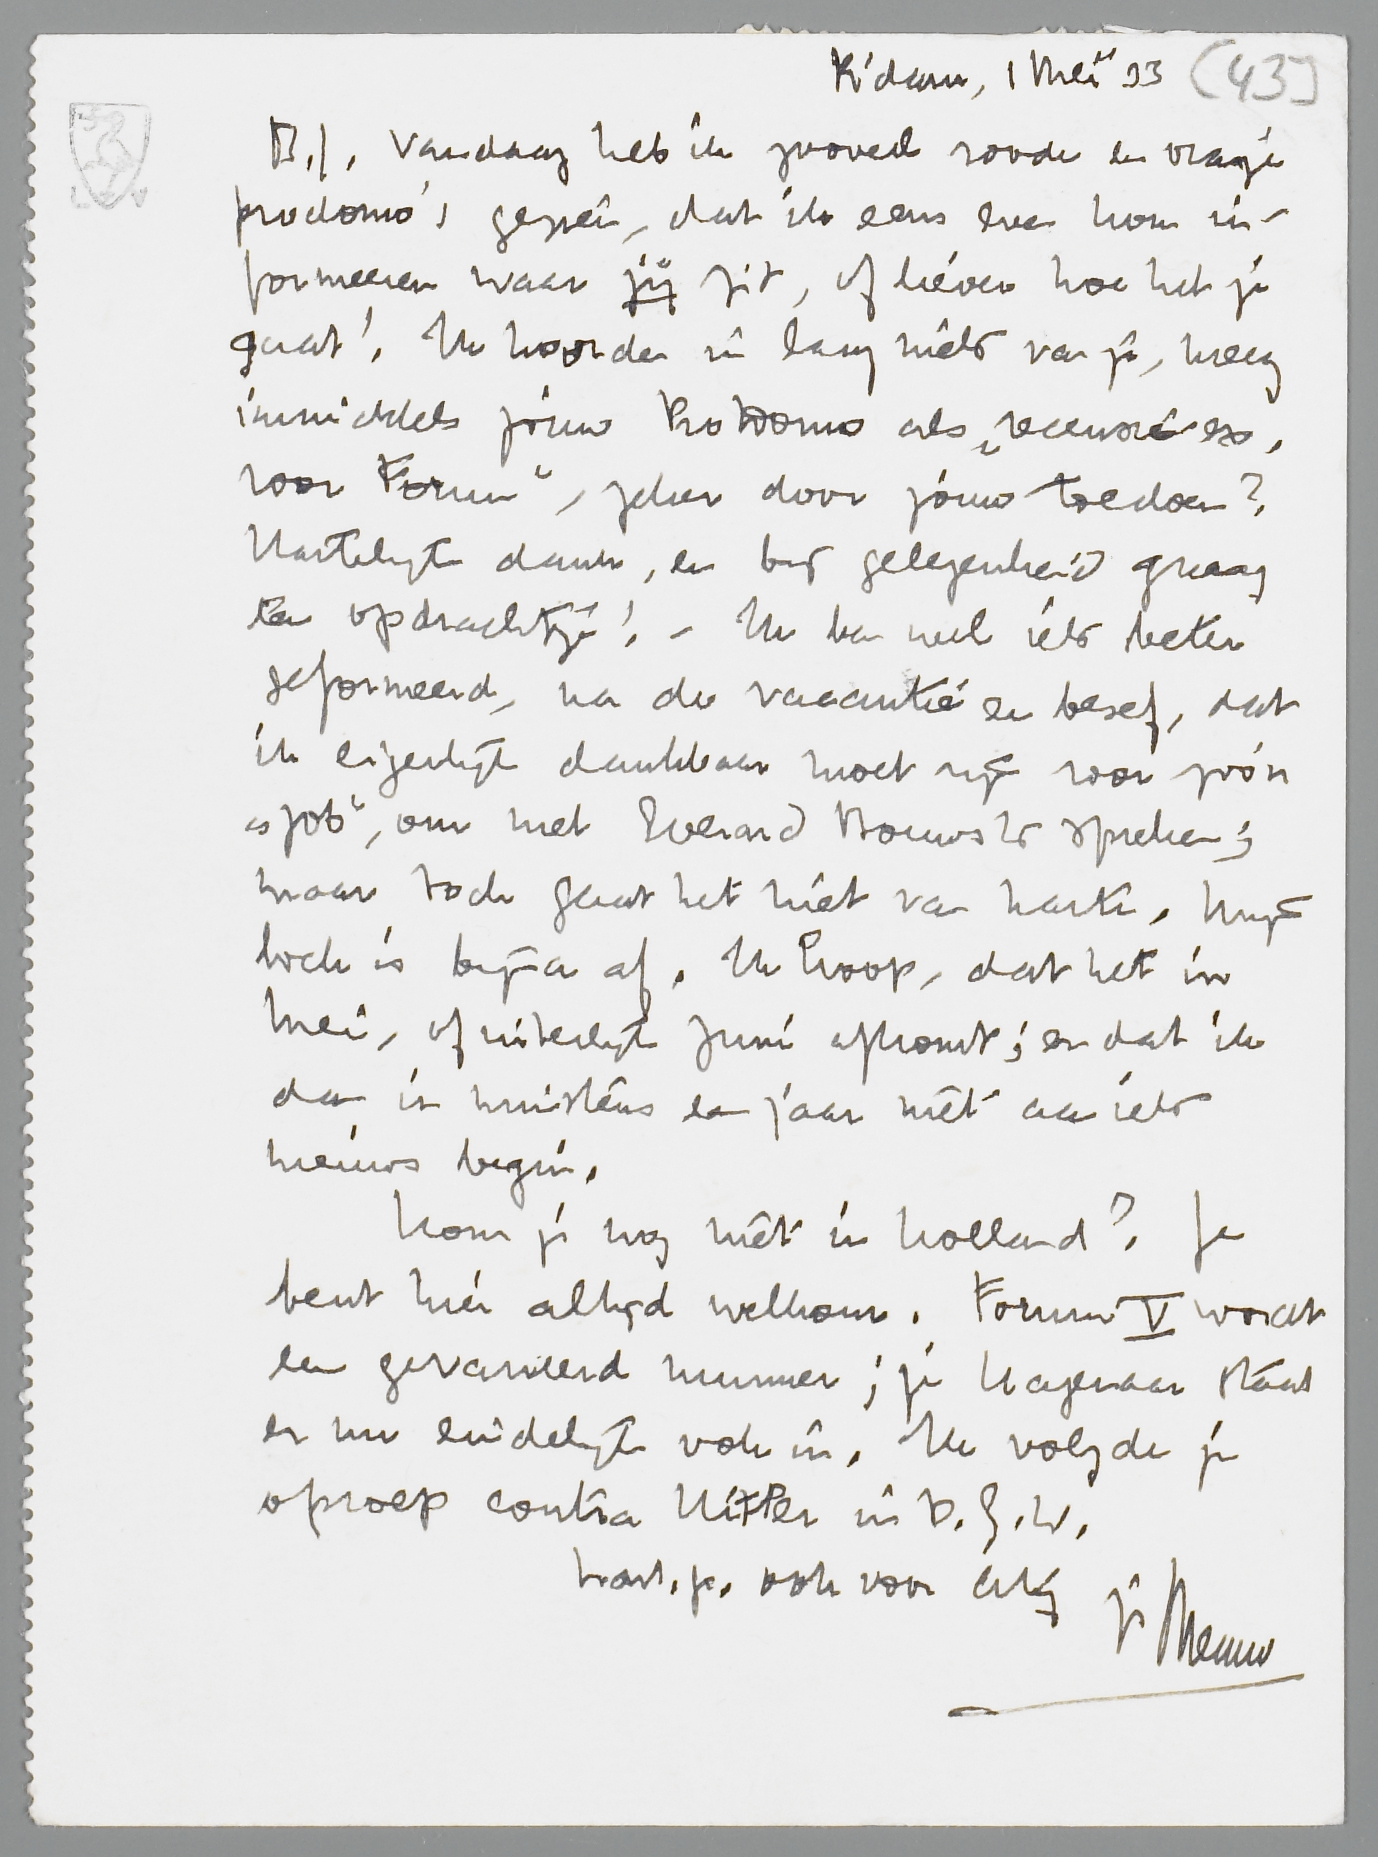 R'dam, 1 Mei '33 (43)
B.J. Vandaag heb ik zooveel roode en oranje
prodomo's gezien, dat ik eens even kom in-
formeeren waar jij zit, of liever hoe het je
gaat! Ik hoorde in lang niets van je, kreeg
inmiddels jouw Pro Domo als „recensie-ex.
voor Forum", zeker door jouw toedoen?
Hartelijk dank, en bij gelegenheid graag
een opdrachtje! - Ik ben wel iets beter
geformeerd, na de vacantie en besef, dat
ik eigenlijk dankbaar moet zijn voor zóó'n
„job", om met Everard Bouws te spreken;
maar toch gaat het niet van harte. Mijn
boek is bijna af. Ik hoop, dat het in
Mei, of uiterlijk Juni afkomt; en dat ik
dan in minstens een jaar niet aan iets
nieuws begin.
Kom je nog niet in Holland? Je
bent hier altijd welkom. Forum V wordt
een gevarieerd nummer; je Hagenaar staat
er nu eindelijk ook in. Ik volgde je
oproep contra Hitler in D.G.W.
hart. gr. ook voor Atty
je Menno
L V